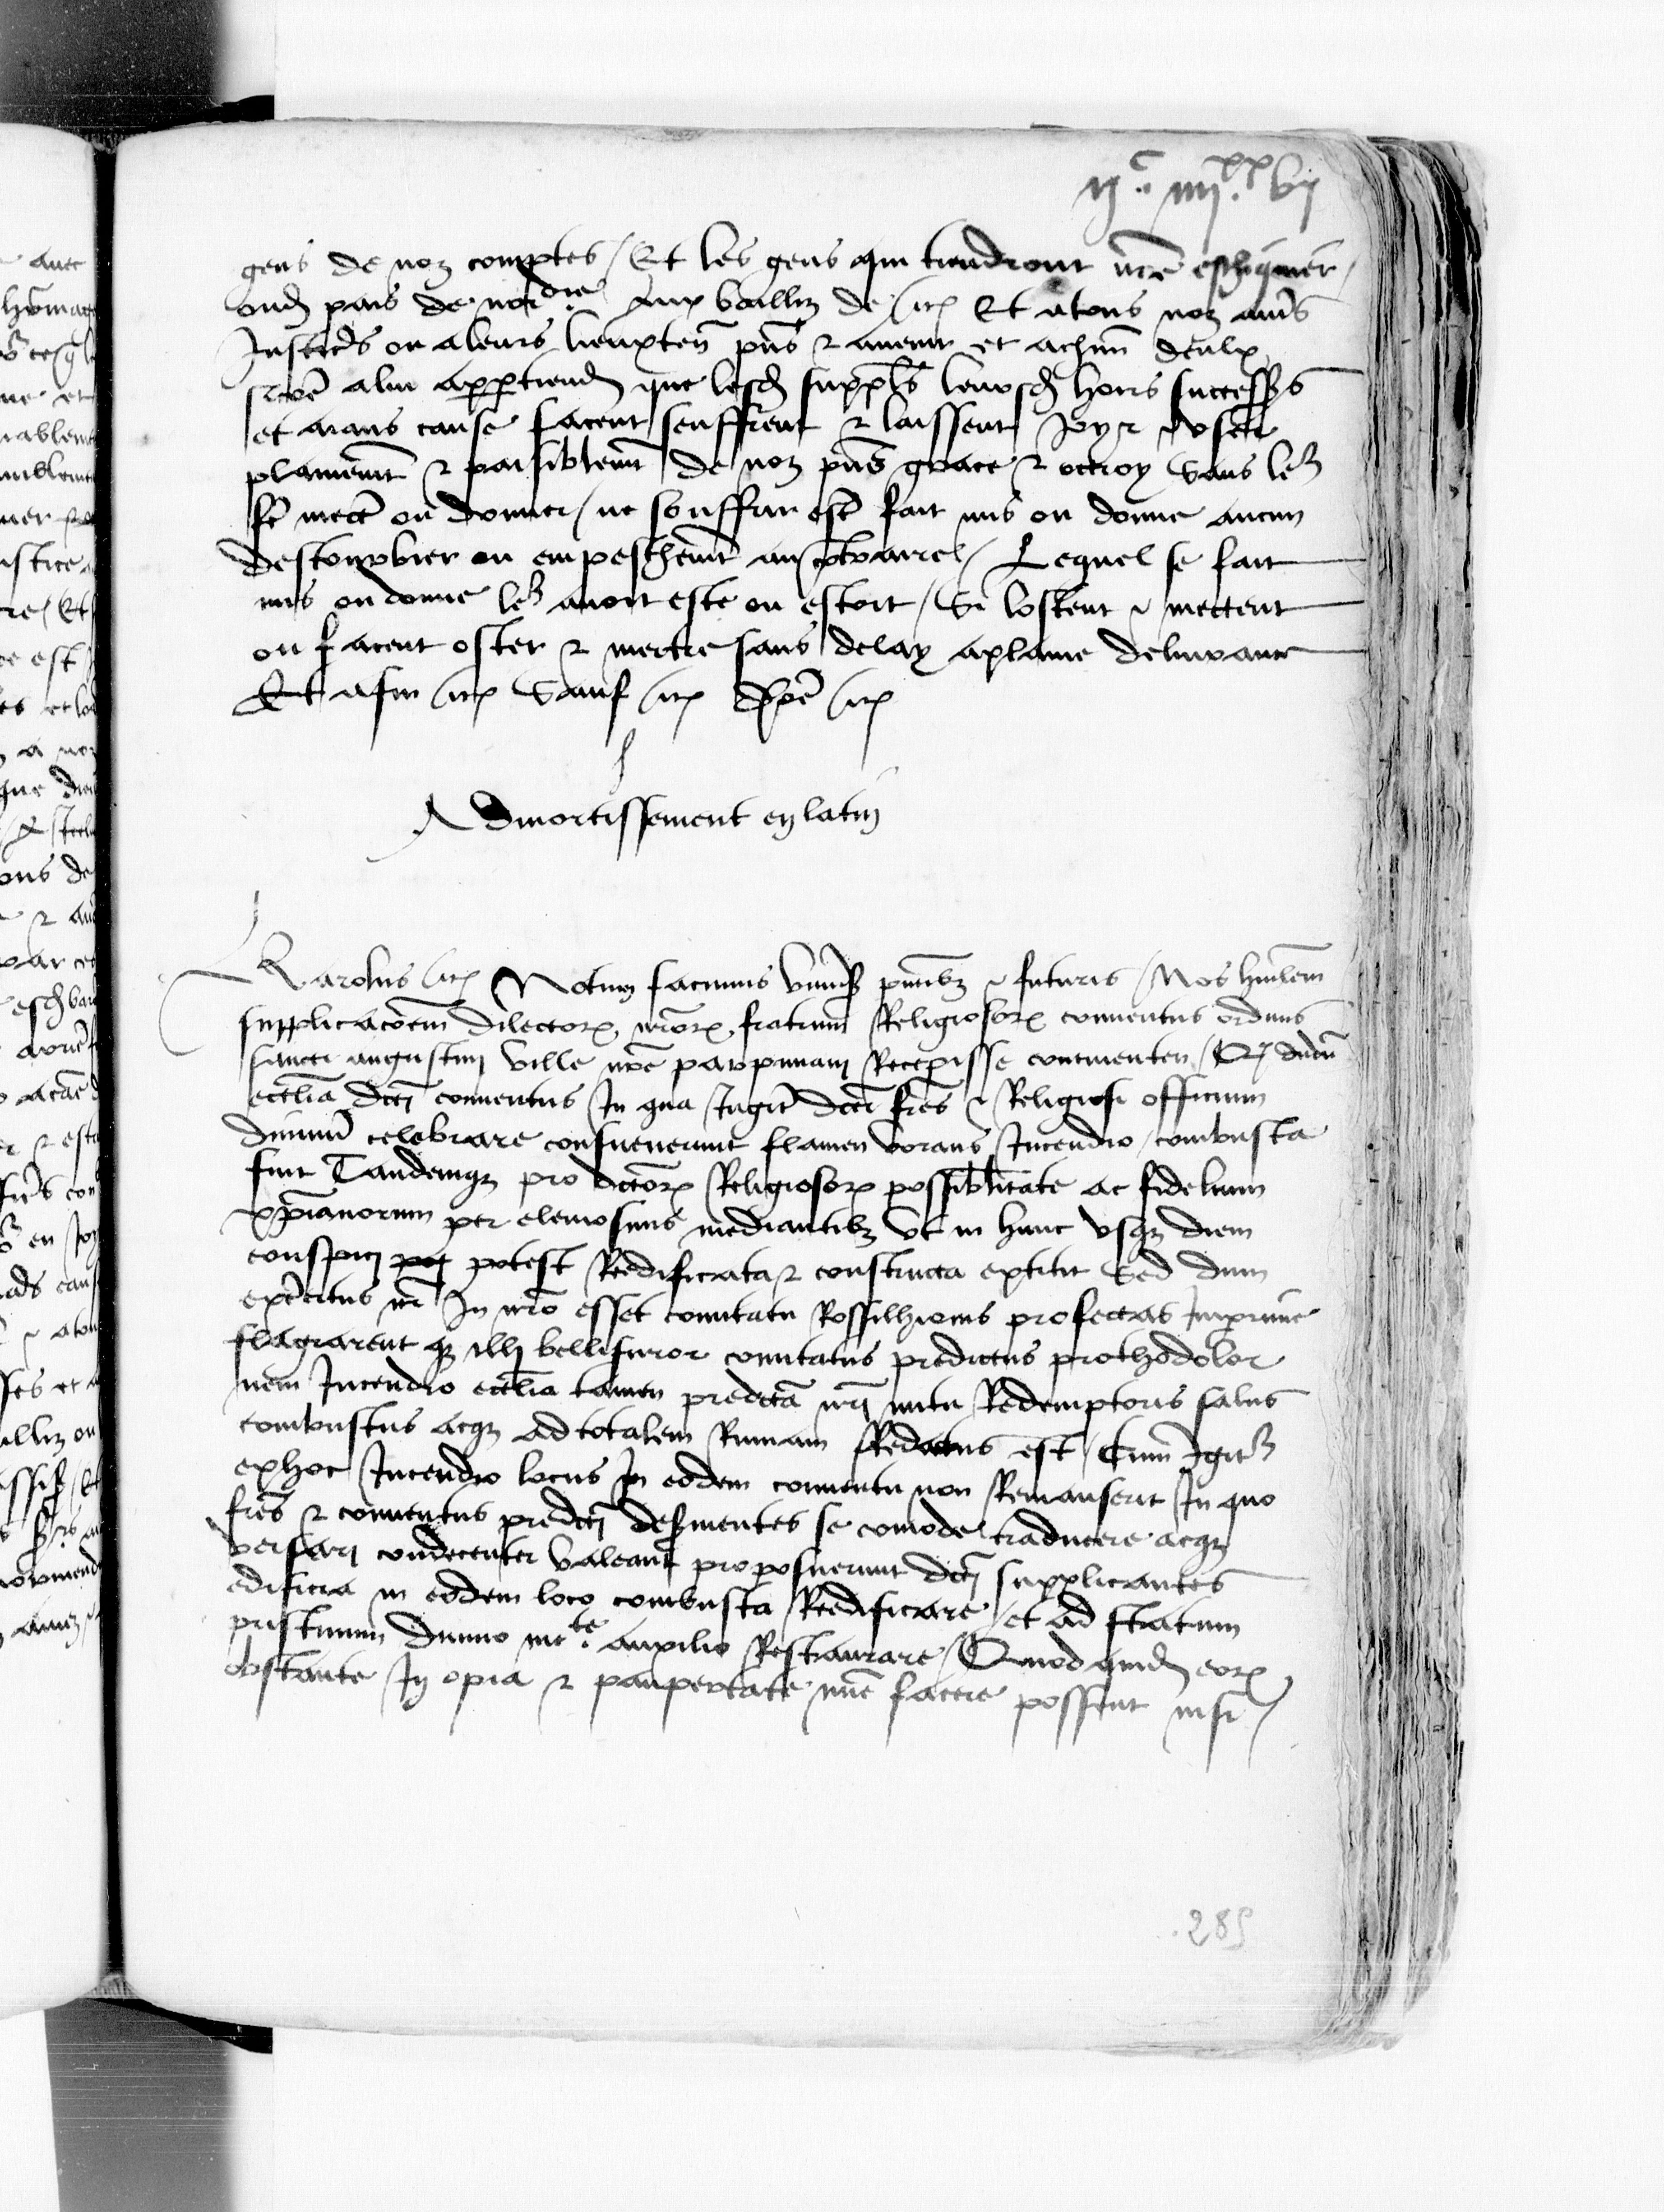 ijc. iiijxx. vj
gens de noz comptes / Et les gens qui tiendront nre eschiquier /
oud pais de nordie Aux bailliz de etc Et atous noz aures
Justicrs ou aleurs lieuxten pns & avenir et achun deulx
sicõe alui appartiend que lesd suppls leursd hoirs successrs
et aians cause facent seuffrent & laissent Joyr & user
plainemnt & paisiblemnt de noz pns grace & octroy Sans ler
fe mectre ou donner / ne souffrir estre fait mis ou donne aucun
destourbier ou empeschemnt au contraire / Lequel se fait
mis ou donne ler avoit este ou estoit / Si lostent & mectent
ou facent oster & mectre sans delay aplaine delivrance
Et afin etc Sauf etc Donne etc
Admortissement en latin
Karolus etc Notum facimus univs pntibz & futuris / Nos humilem
supplicacoem dilectorum nrorum fratrum Religiosorum conventus ordinis
sancti augustini ville nre parpiniani Recepisse continentem / Qd dudum
ecclia dicti conventus In qua Jugiter dicti fres & Religiosi officium
divinu celebrare consueverunt flamen vorans Incendio combusta
fuit Tandemqz pro dictorum Religiosorum possibilitate ac fidelium
xpianorum per elemosinis mediantibz ut in hunc usqz diem
conspici poj potest Reedificata & constructa extitit Sed dum
exercitus nr In nro esset comitatu Rossilhionis profectus
flagraret qz illi belli furor comitatus predictus prothodolor
nem Incendio ecclia tamen predicta nri nutu Redemptoris salus
combustus acqz ad totalem Ruinam Redactus est / Cum Igitr
ex hoc Incendio locus In eodem conventu non Remanserit In quo
fres & conventus predicti desinentes se comode traducere acqz
versari condecenter valeant proposuerunt dicti supplicantes
edificia in eodem loco combusta Reedificare / et ad statum
pristinum divino mete auxilio Restaurare / Quod quidem eorum
obstante In opia & paupertate mie facere possent nisi /
285